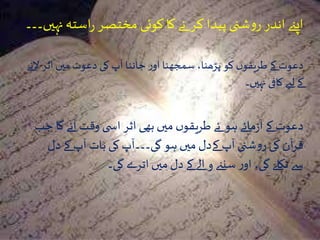 اپنے اندر روشنی پیدا کرنے کا کوئی مختصر راستہ نہیں۔۔۔
دعوت کے طریقوں کو پڑھنا، سمجھنا اور جاننا آپ کی دعوت میں اثر لانے
کے لیے کافی نہیں۔
دعوت کے آزمائے ہوئے طریقوں میں بھی اثر اسی وقت آئے گا جب
قرآن کی روشنی آپ کے دل میں ہو گی۔۔۔آپ کی بات آپ کے دل
سے نکلے گی، اور سننے والے کے دل میں اترے گی۔